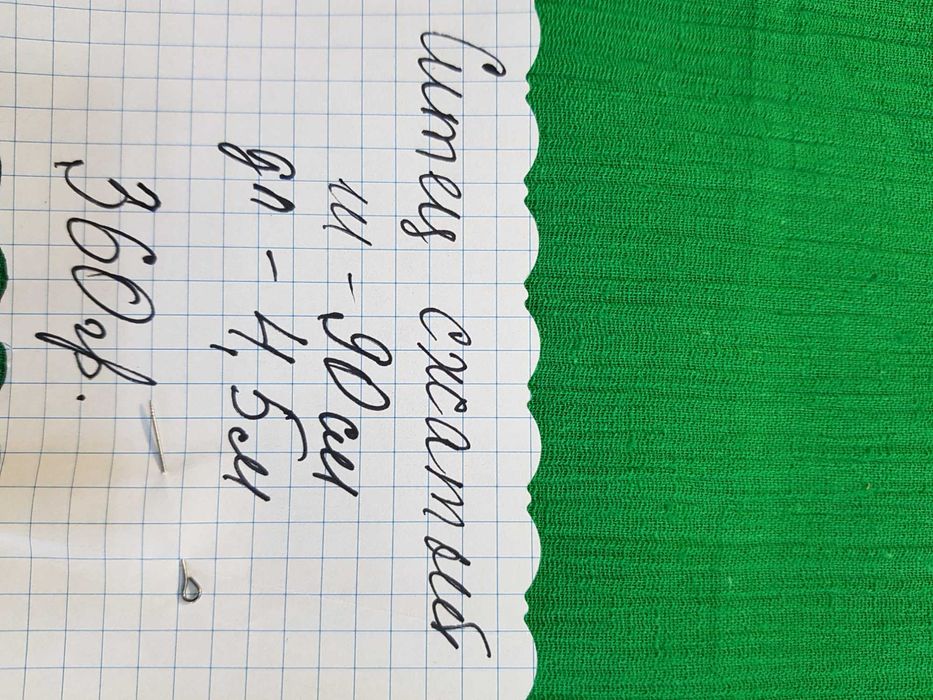 Ситец сжатый
ш - 90 см
дл - 4,5 м
360 гр.